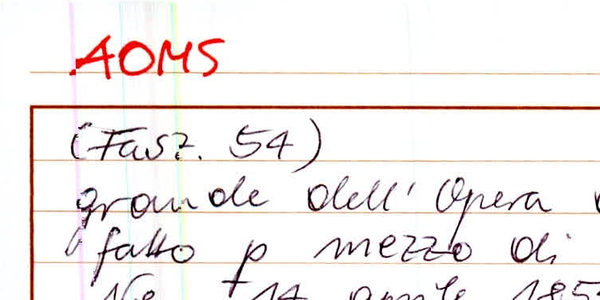 AOMS
(Fasz. 54)
grande dell' Opera
fatto p mezzo di
14 aprile 185